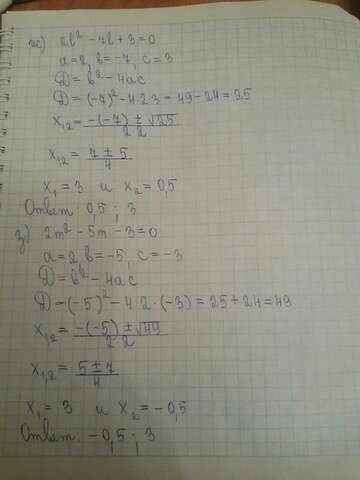 ж) 2b² - 7b + 3 = 0
a = 2, b = -7, c = 3
D = b² - 4ac
D = (-7)² - 4·2·3 = 49 - 24 = 25
x₁,₂ = (-(-7) ± √25) / (2·2)
x₁,₂ = (7 ± 5) / 4
x₁ = 3 и x₂ = 0,5
Ответ: 0,5 ; 3
з) 2m² - 5m - 3 = 0
a = 2, b = -5, c = -3
D = b² - 4ac
D = (-5)² - 4·2·(-3) = 25 + 24 = 49
x₁,₂ = (-(-5) ± √49) / (2·2)
x₁,₂ = (5 ± 7) / 4
x₁ = 3 и x₂ = -0,5
Ответ: -0,5 ; 3